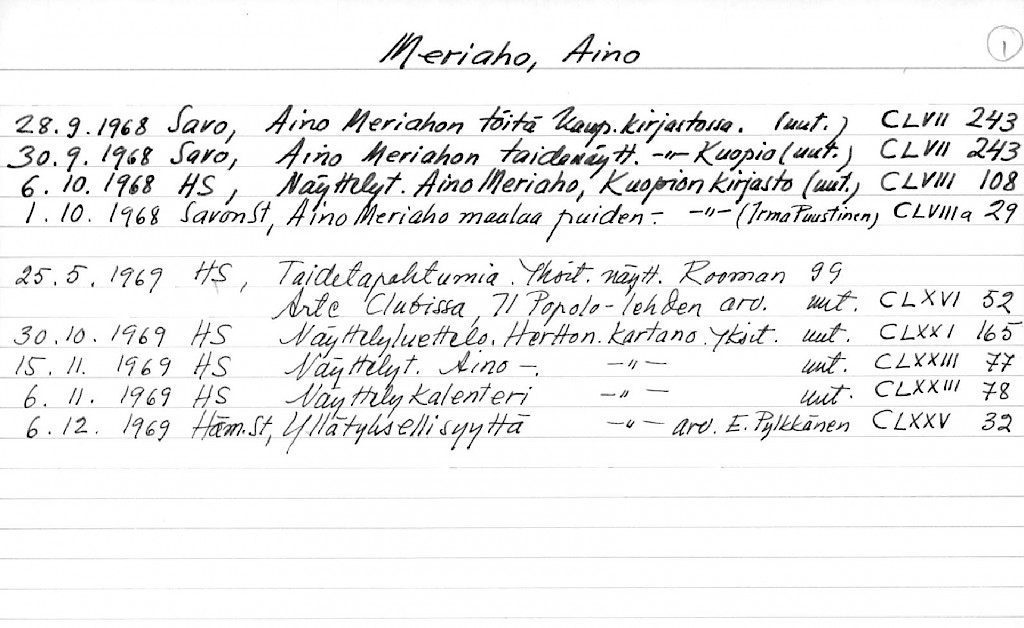 Meriaho, Aino 1
28.9.1968 Savo, Aino Meriahon töitä Kaup.kirjastossa. (uut.) CLVII 243
30.9.1968 Savo, Aino Meriahon taidenäytt. -"- Kuopio (uut.) CLVII 243
6.10.1968 HS, Näyttelyt. Aino Meriaho, Kuopion kirjasto (uut.) CLVIII 108
1.10.1968 SavonSt, Aino Meriaho maalaa puiden - -"- (Irma Puustinen) CLVIIIa 29
25.5.1969 HS, Taidetapahtumia. Yksit. näytt. Rooman 99
Arte Clubissa, Il Popolo-lehden arv. uut. CLXVI 52
30.10.1969 HS Näyttelyluettelo. Hertton. Kartano. Yksit. uut. CLXXI 165
15.11.1969 HS Näyttelyt. Aino -. -"- uut. CLXXIII 77
6.11.1969 HS Näyttelykalenteri -"- uut. CLXXIII 78
6.12.1969 Häm.St, Yllätyksellisyyttä -"- arv. E. Pylkkänen CLXXV 32